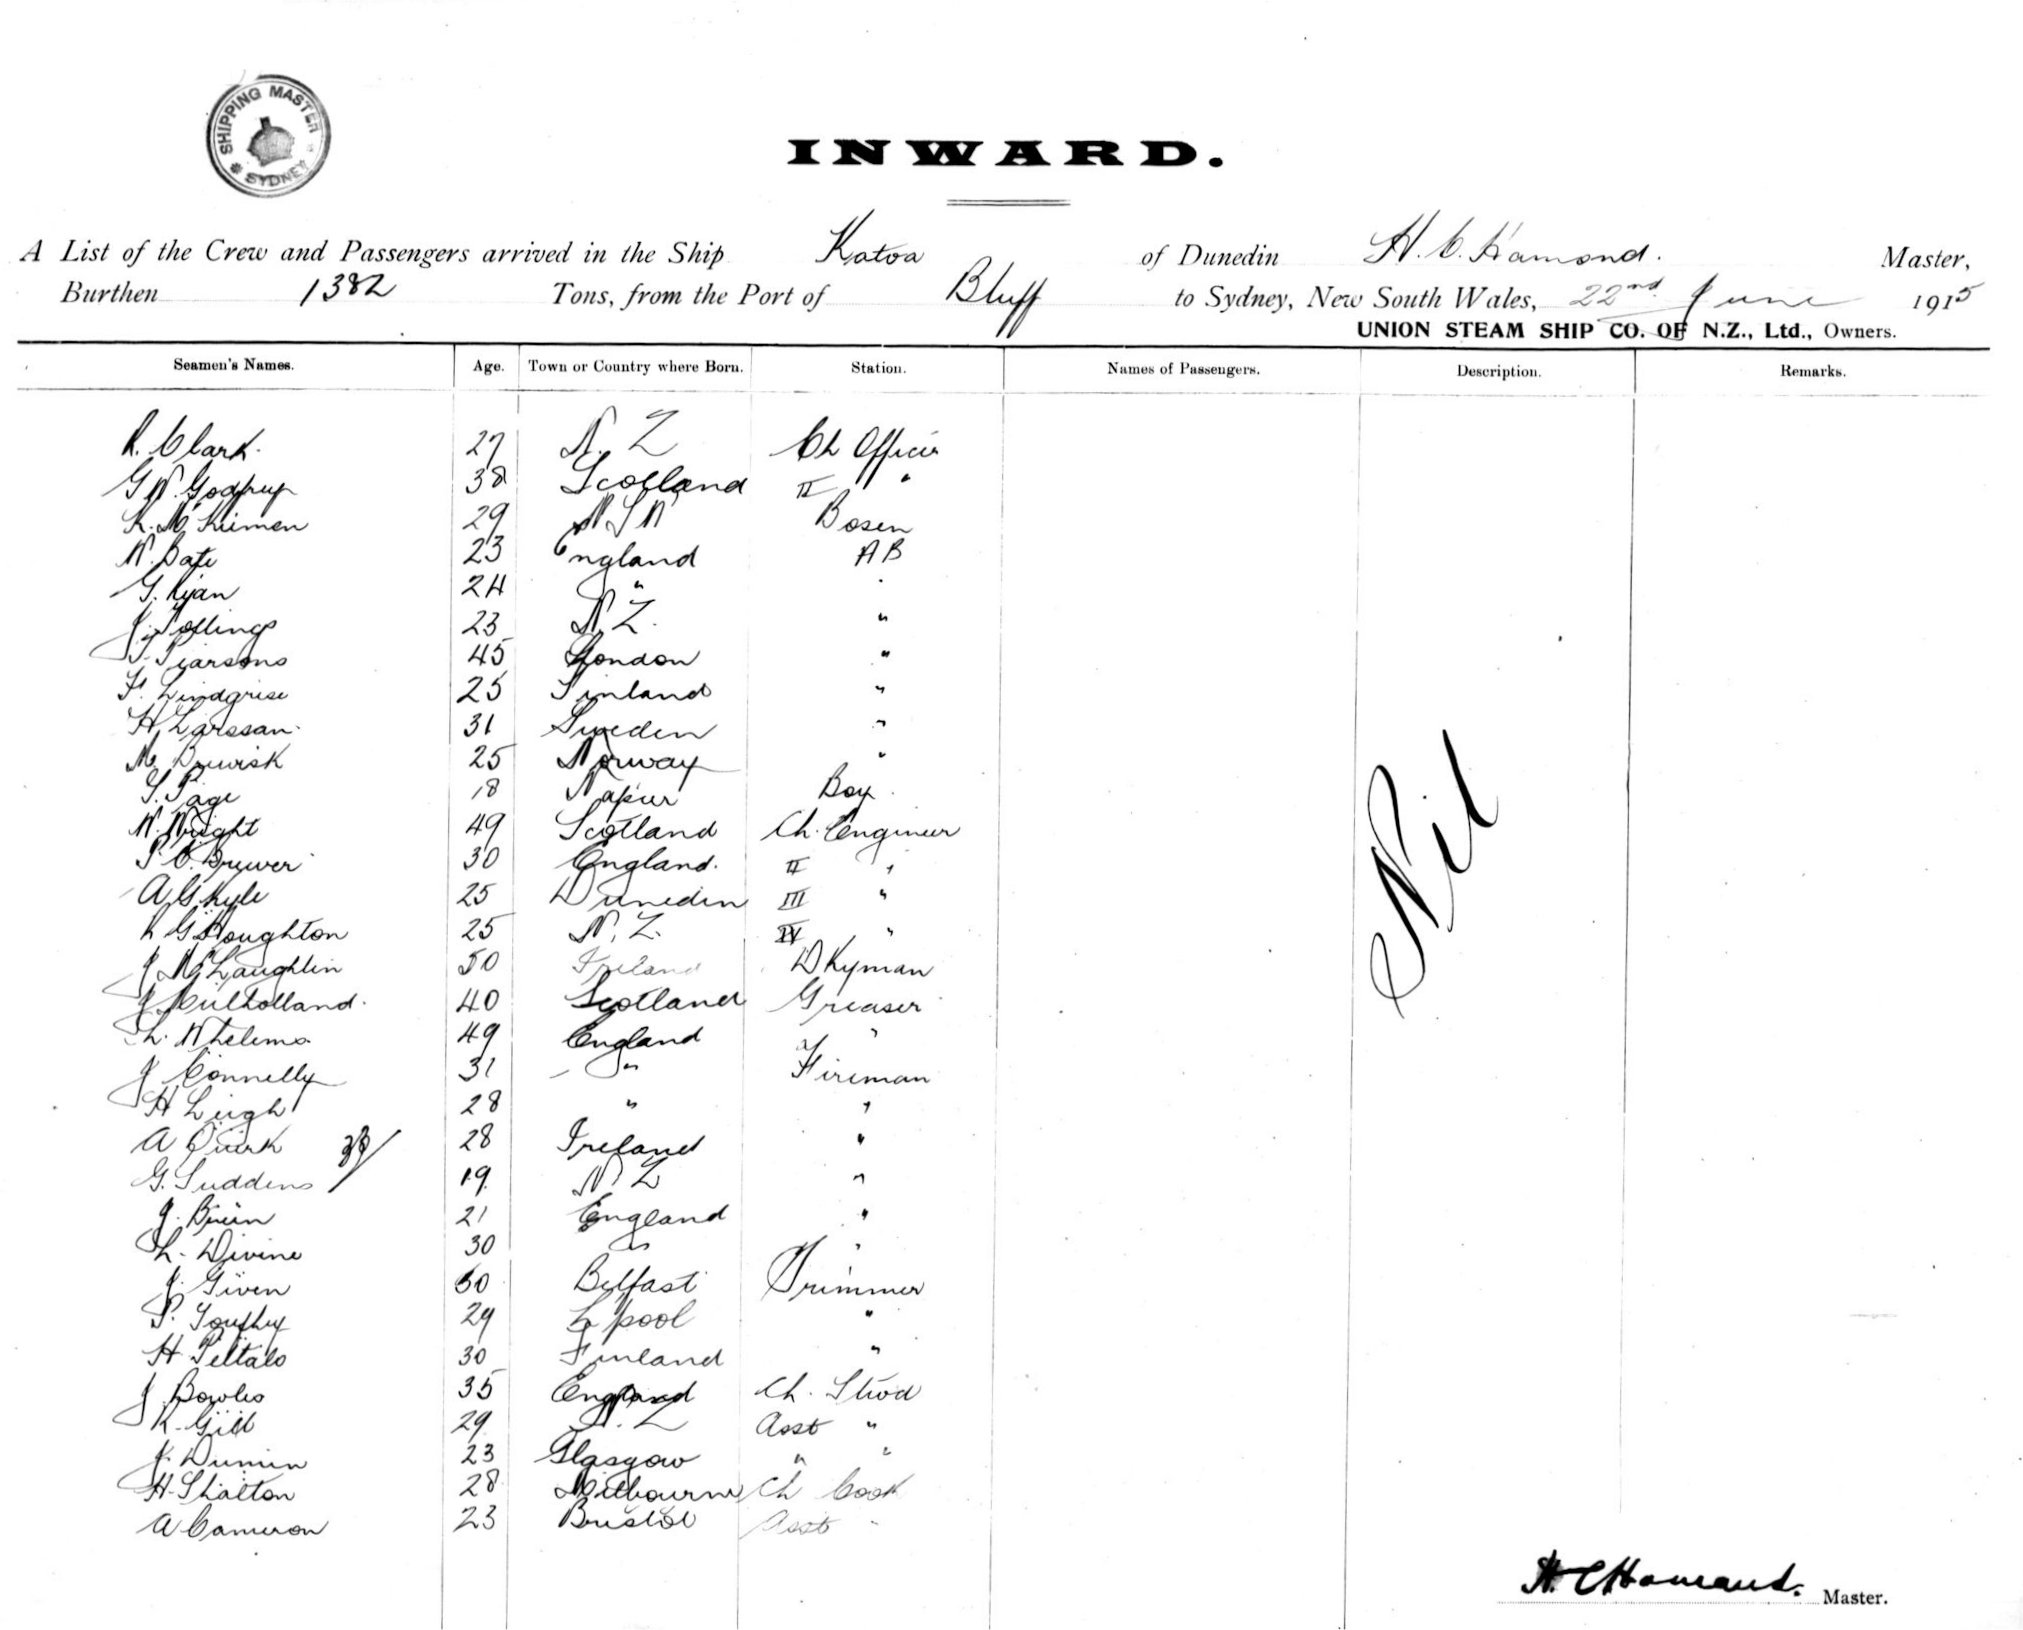 SHIPPING MASTER SYDNEY
INWARD.
A List of the Crew and Passengers arrived in the Ship Katoa of Dunedin H. C. Hamond. Master,
Burthen 1382 Tons, from the Port of Bluff to Sydney, New South Wales, 22nd June 1915
UNION STEAM SHIP CO. OF N.Z., Ltd., Owners.
Seamen's Names. Age. Town or Country where Born. Station. Names of Passengers. Description. Remarks.
R. Clark. 27 N. Z Ch Officer
G W Godfrey 38 Scotland II "
29 N S W Bosen
W. Bate 23 England A B
G. Ryan 24 "
J. 23 N. Z. "
T. Pearsons 45 London "
F. 25 Finland "
H. Larssan. 31 Sweden "
25 Norway "
S. Page 18 Napier Boy
W. Wright 49 Scotland Ch. Engineer
P. C. Brewer 30 England. II "
A G Kyle 25 Dunedin III "
R G Houghton 25 N. Z. IV "
J McLaughlin 50 Ireland Dkyman
J Mulholland. 40 Scotland Greaser
49 England "
J Connelly 31 " Fireman
H Leigh 28 " "
A Quirk 28 Ireland "
G. Suddens 19 N Z "
J. 21 England "
L. Divine 30 " "
J. Given 30 Belfast Trimmer
P. 29 L'pool "
H 30 Finland "
J. Bowles 35 England Ch. Stwd
R. Gill 29 N. Z Asst "
J. 23 Glasgow " "
H. 28 Melbourne Ch Cook
A Cameron 23 Bristol Asst "
Nil
H. C Hamond. Master.